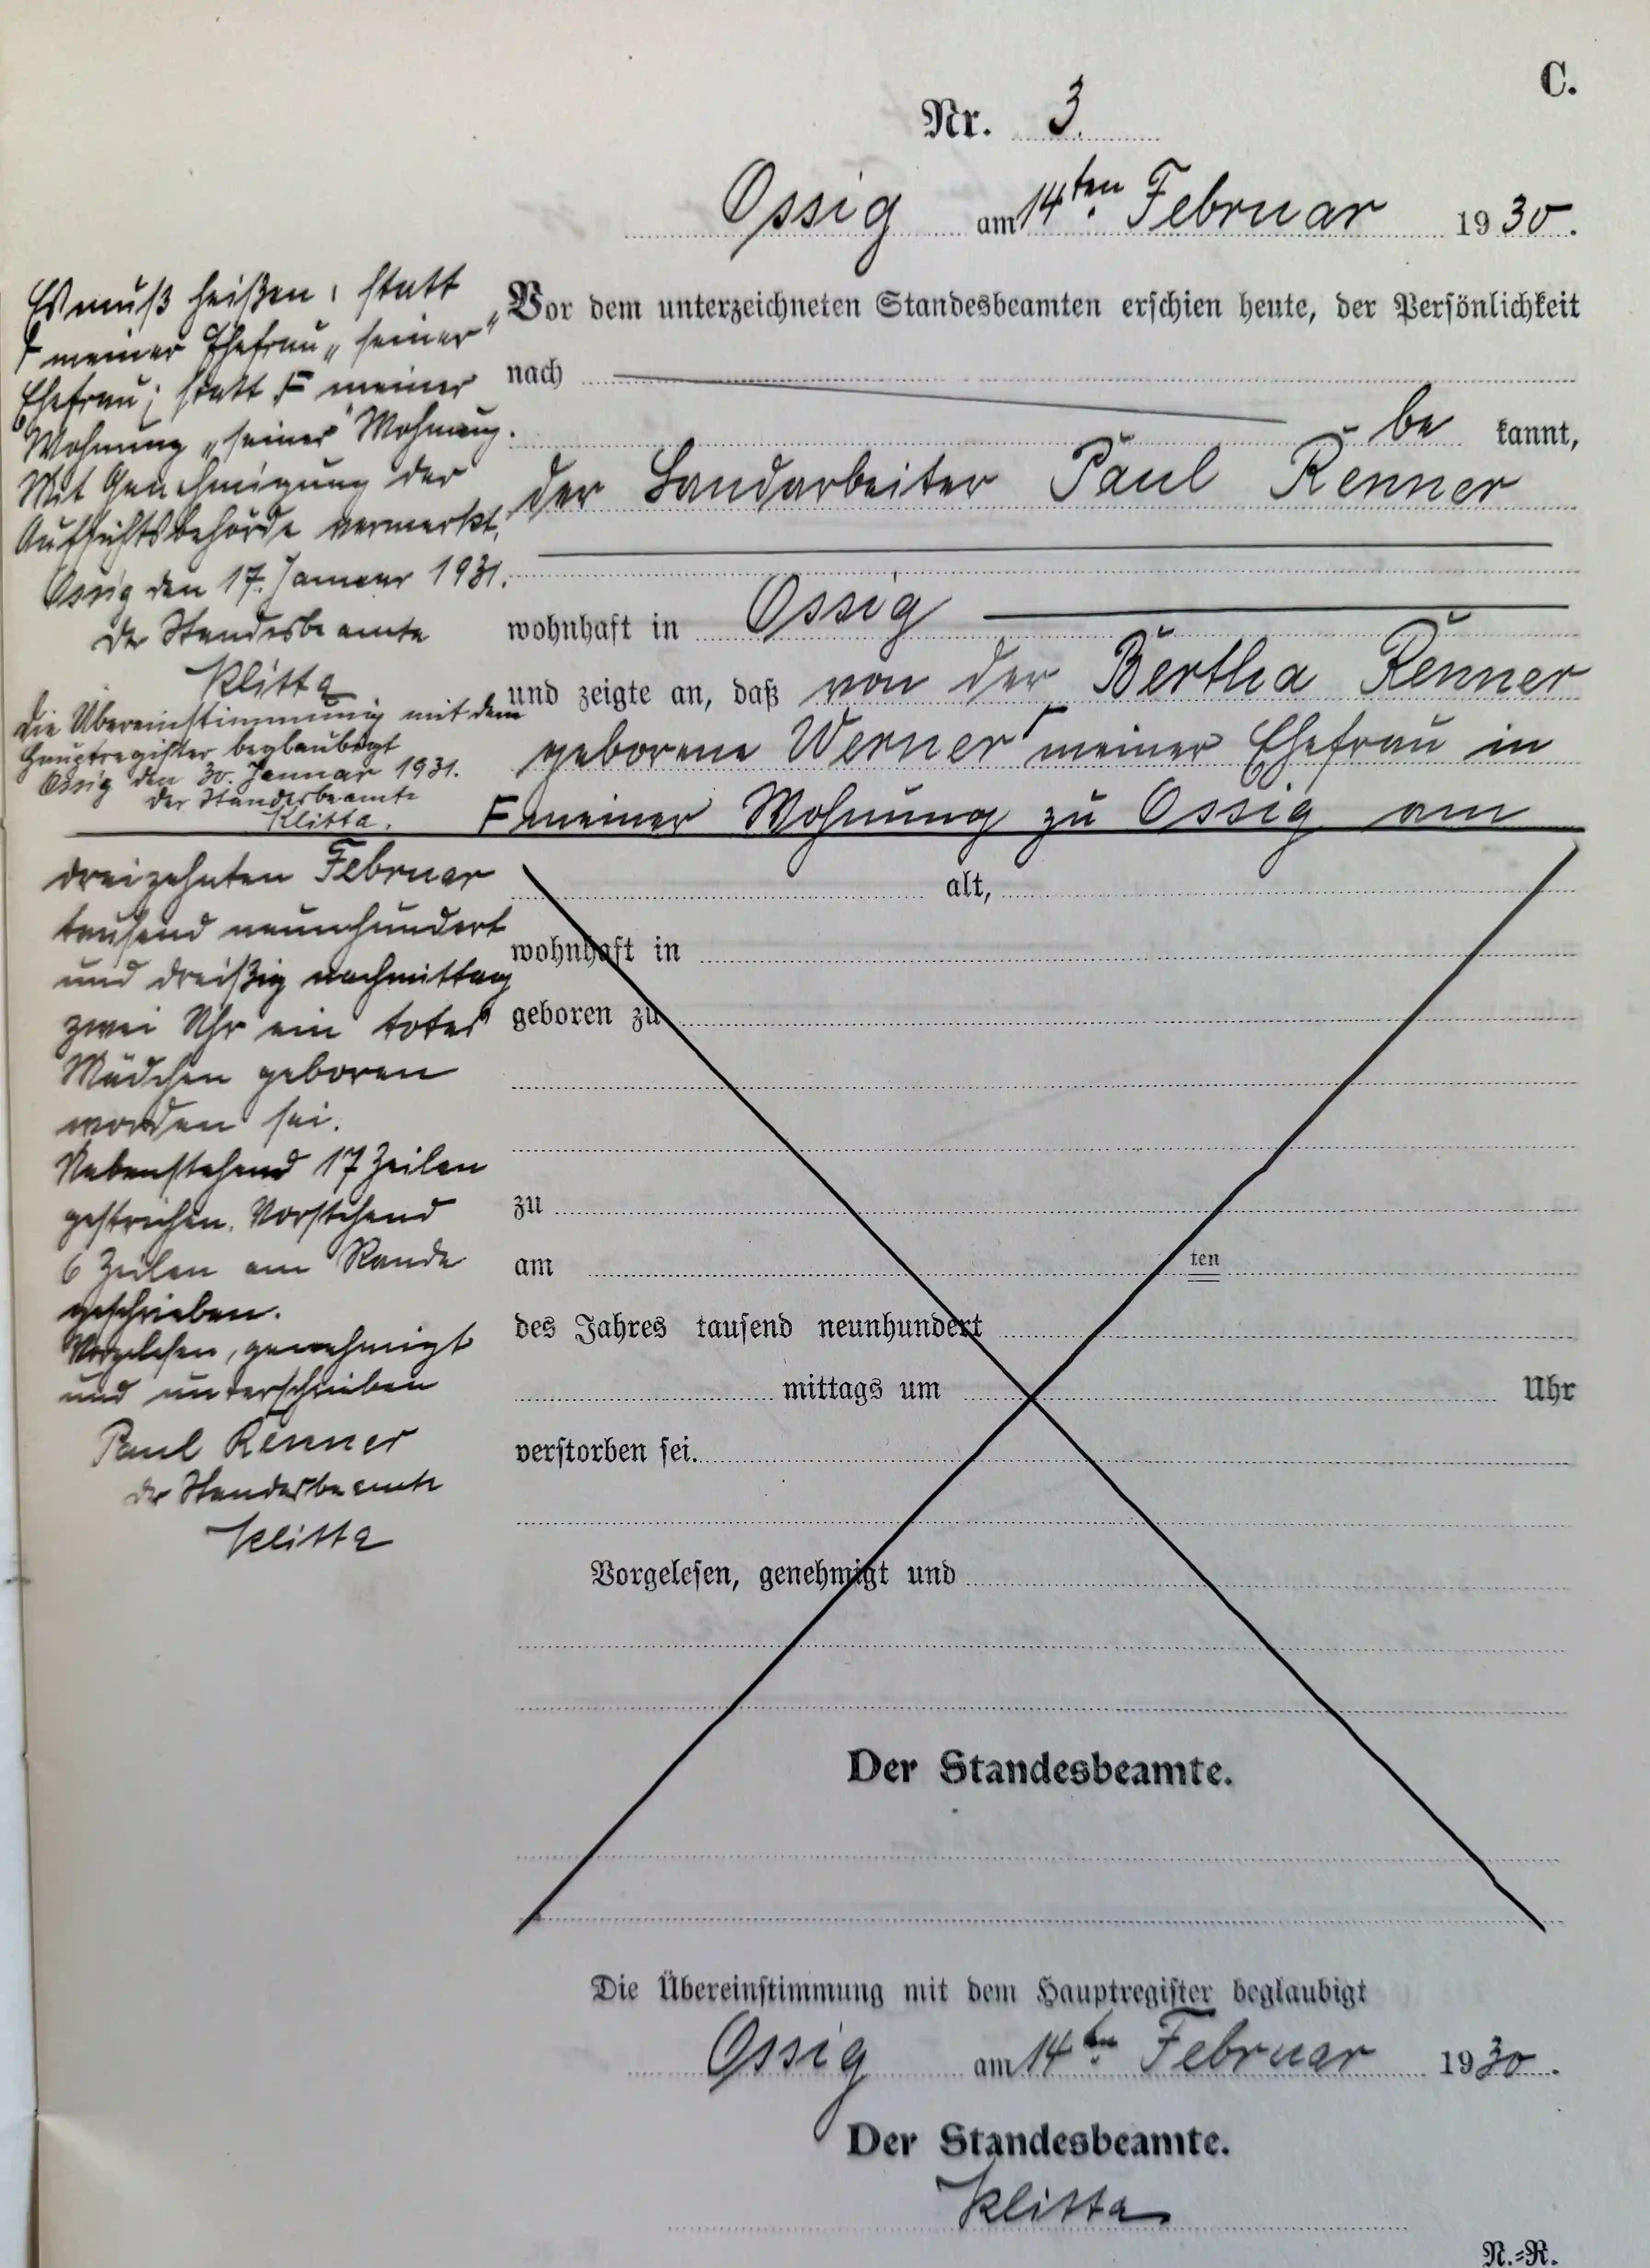 C.
Nr. 3.
Ossig am 14ten Februar 1930.
Vor dem unterzeichneten Standesbeamten erschien heute, der Persönlichkeit
nach
be kannt,
der Landarbeiter Paul Renner
wohnhaft in Ossig
und zeigte an, daß von der Bertha Renner
geborene Werner ┌ meiner Ehefrau in
F meiner Wohnung zu Ossig am
Es muß heißen, statt
┌ meiner Ehefrau „seiner"
Ehefrau; statt F meiner
Wohnung „seiner" Wohnung.
Mit Genehmigung der
Aufsichtsbehörde vermerkt.
Ossig den 17. Januar 1931.
Der Standesbeamte
Klitta
Die Übereinstimmung mit dem
Hauptregister beglaubigt
Ossig den 30. Januar 1931.
Der Standesbeamte
Klitta.
dreizehnten Februar
tausend neunhundert
und dreißig nachmittag
zwei Uhr ein totes
Mädchen geboren
worden sei.
Nebenstehend 17 Zeilen
gestrichen. Vorstehend
6 Zeilen am Rande
geschrieben.
Vorgelesen, genehmigt
und unterschrieben
Paul Renner
Der Standesbeamte
Klitta
alt,
wohnhaft in
geboren zu
zu
am ten
des Jahres tausend neunhundert
mittags um Uhr
verstorben sei.
Vorgelesen, genehmigt und
Der Standesbeamte.
Die Übereinstimmung mit dem Hauptregister beglaubigt
Ossig am 14ten Februar 1930.
Der Standesbeamte.
Klitta
N.=R.